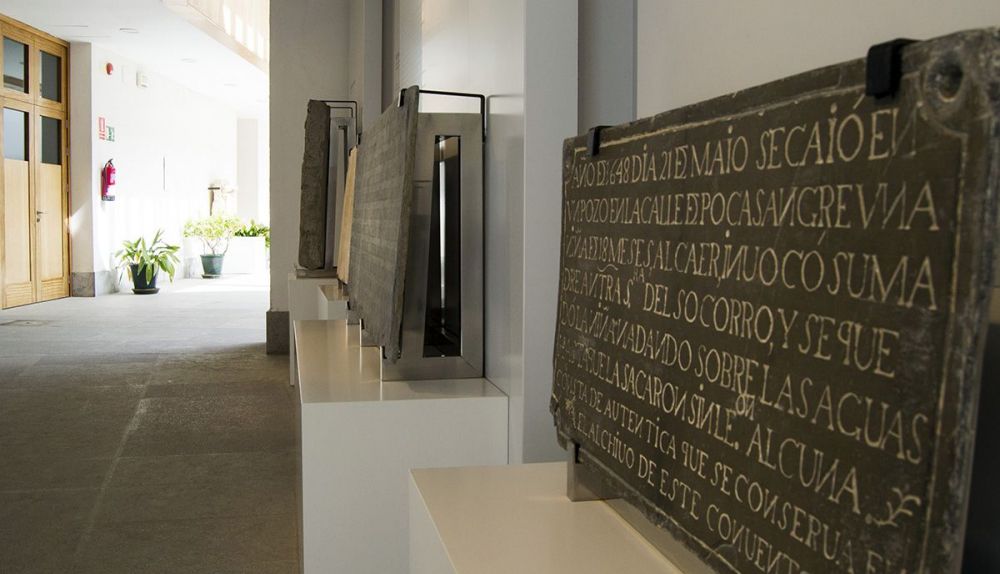 AÑO DE 1648 DIA 21 DE MAIO SE CAIÓ EN
VN POZO EN LA CALLE DE POCA SANGRE VNA
NIÑA DE 18 MESES AL CAER, INUOCÓ SU MA
DRE A NTRA SRA DEL SOCORRO, Y SE QUE
DO LA NIÑA NADANDO SOBRE LAS AGUAS
LA SACARON SIN LEON ALGUNA
CONSTA DE AUTENTICA QUE SE CONSERUA EN
EL ALCHIUO DE ESTE CONUENTO